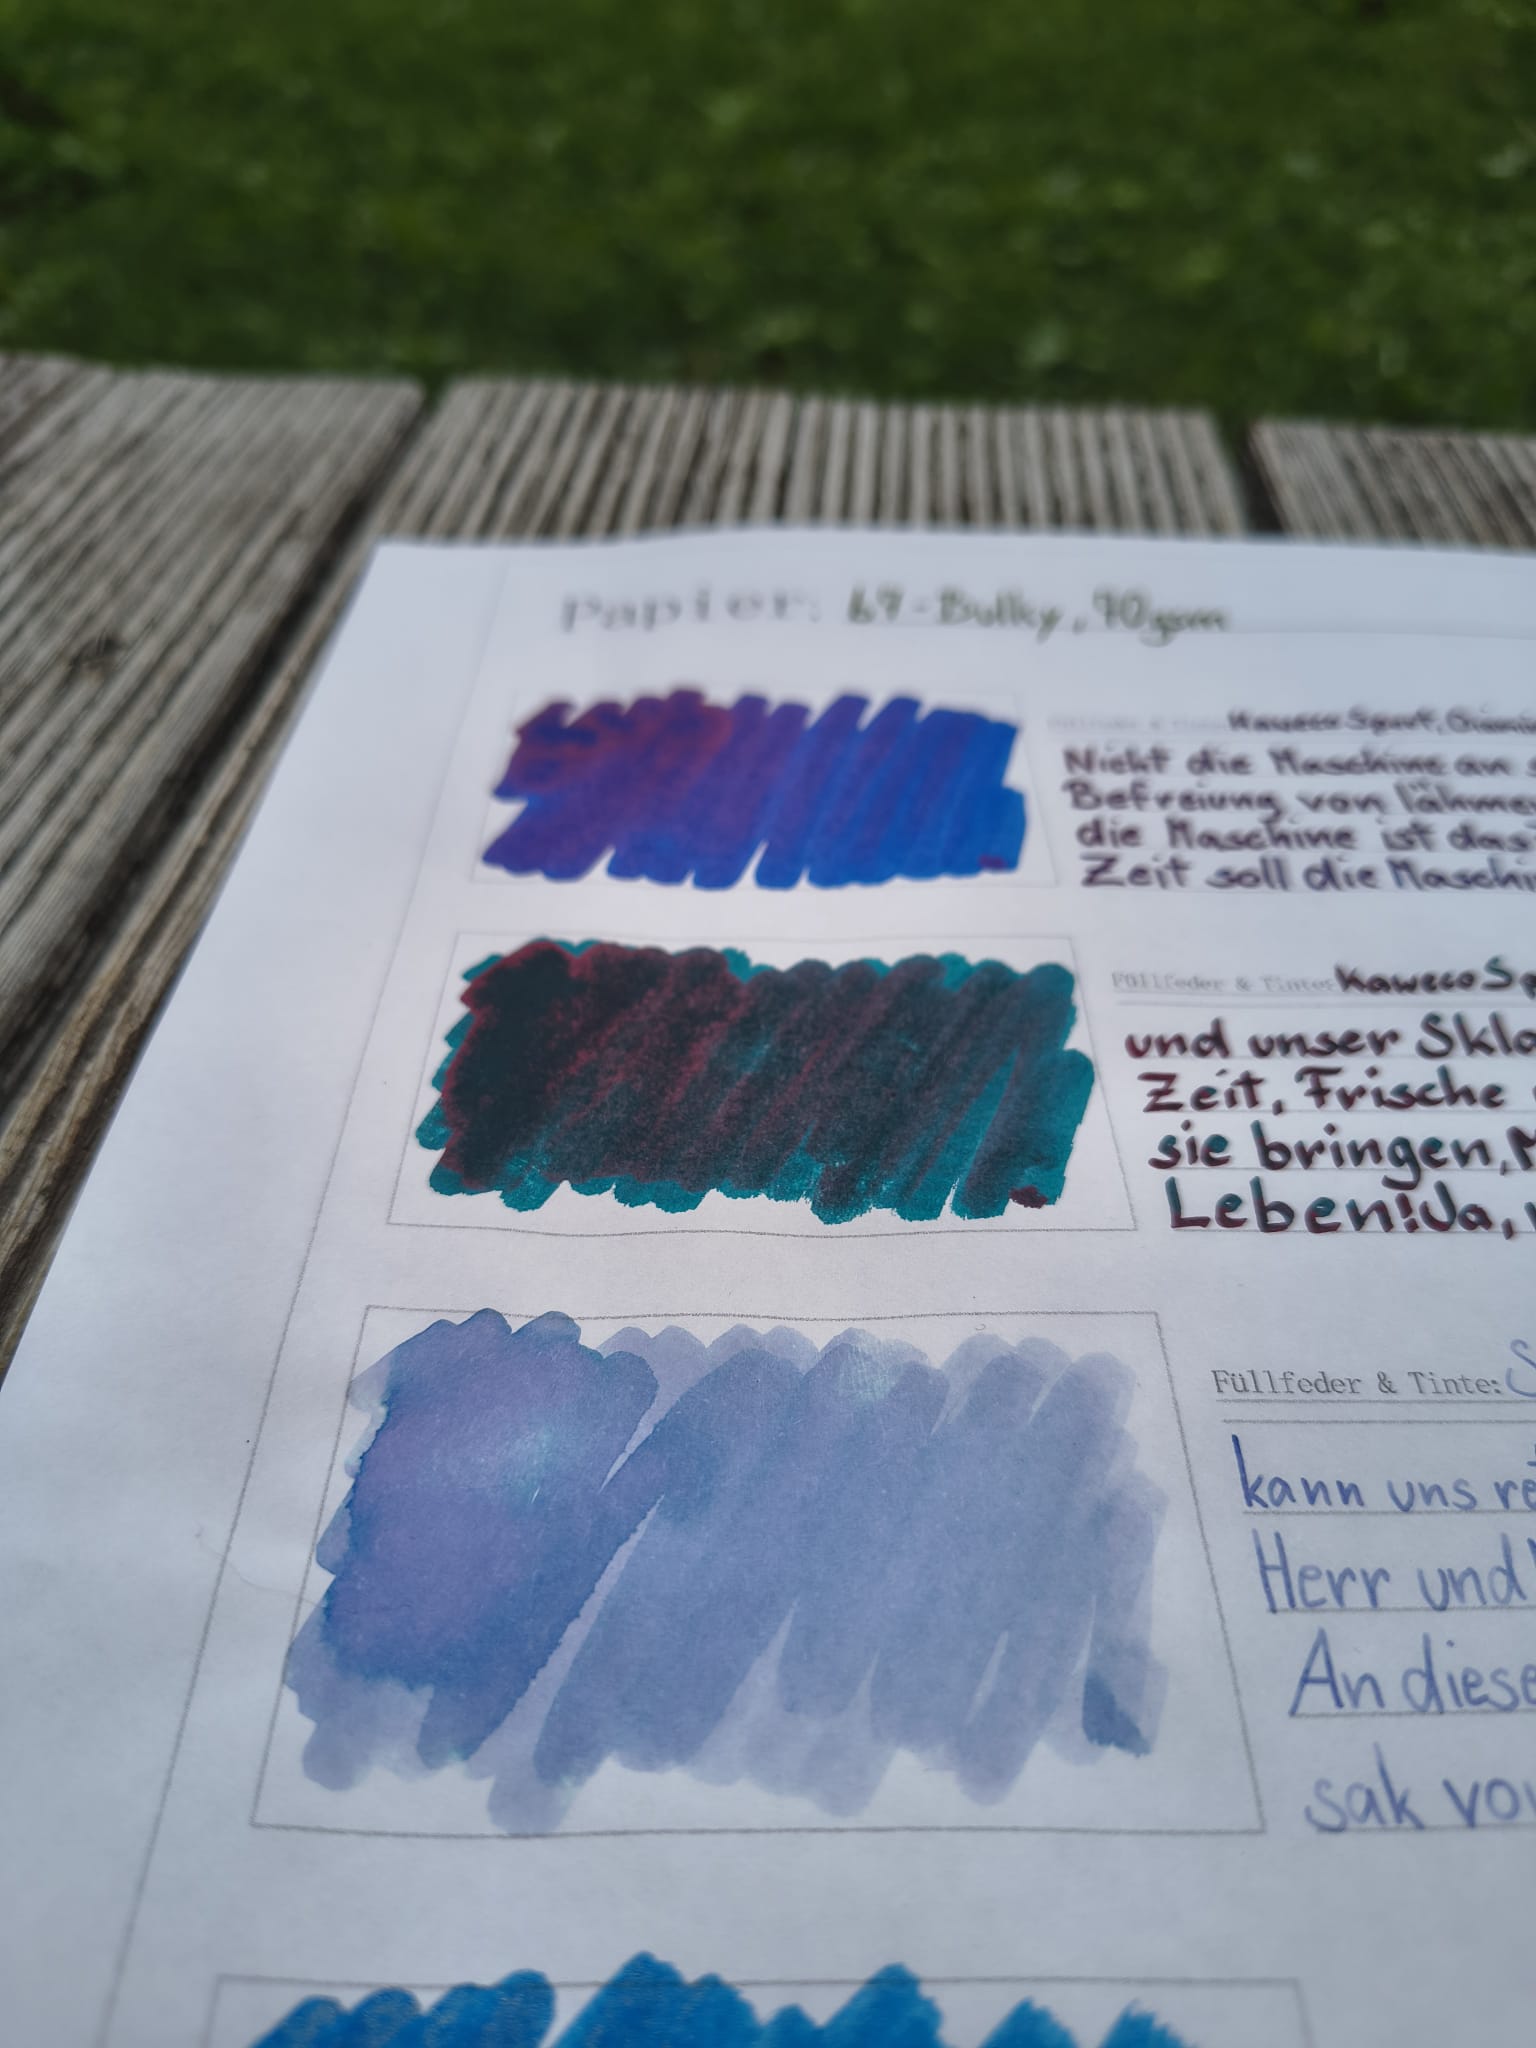 Papier: 67-Bulky, 70gsm
Kaweco Sport,
Nicht die Maschine an
Befreiung von
die Maschine ist das
Zeit soll die
Füllfeder & Tinte: Kaweco
und unser
Zeit, Frische
sie bringen,
Leben! Ja,
Füllfeder & Tinte:
kann uns
Herr und
An diese
sak